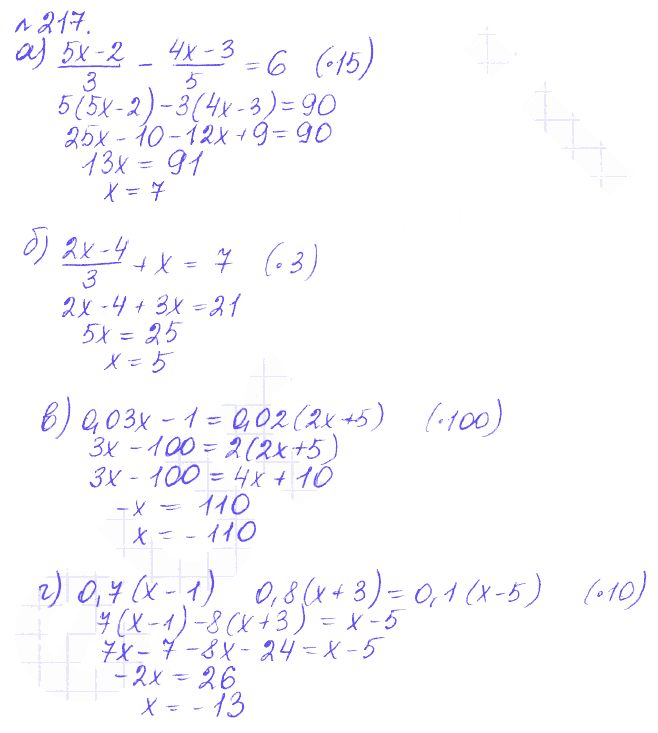 №217.
а) (5x-2)/3 - (4x-3)/5 = 6 (·15)
5(5x-2)-3(4x-3)=90
25x-10-12x+9=90
13x=91
x=7
б) (2x-4)/3 + x = 7 (·3)
2x-4+3x=21
5x=25
x=5
в) 0,03x-1=0,02(2x+5) (·100)
3x-100=2(2x+5)
3x-100=4x+10
-x=110
x=-110
г) 0,7(x-1) 0,8(x+3)=0,1(x-5) (·10)
7(x-1)-8(x+3)=x-5
7x-7-8x-24=x-5
-2x=26
x=-13